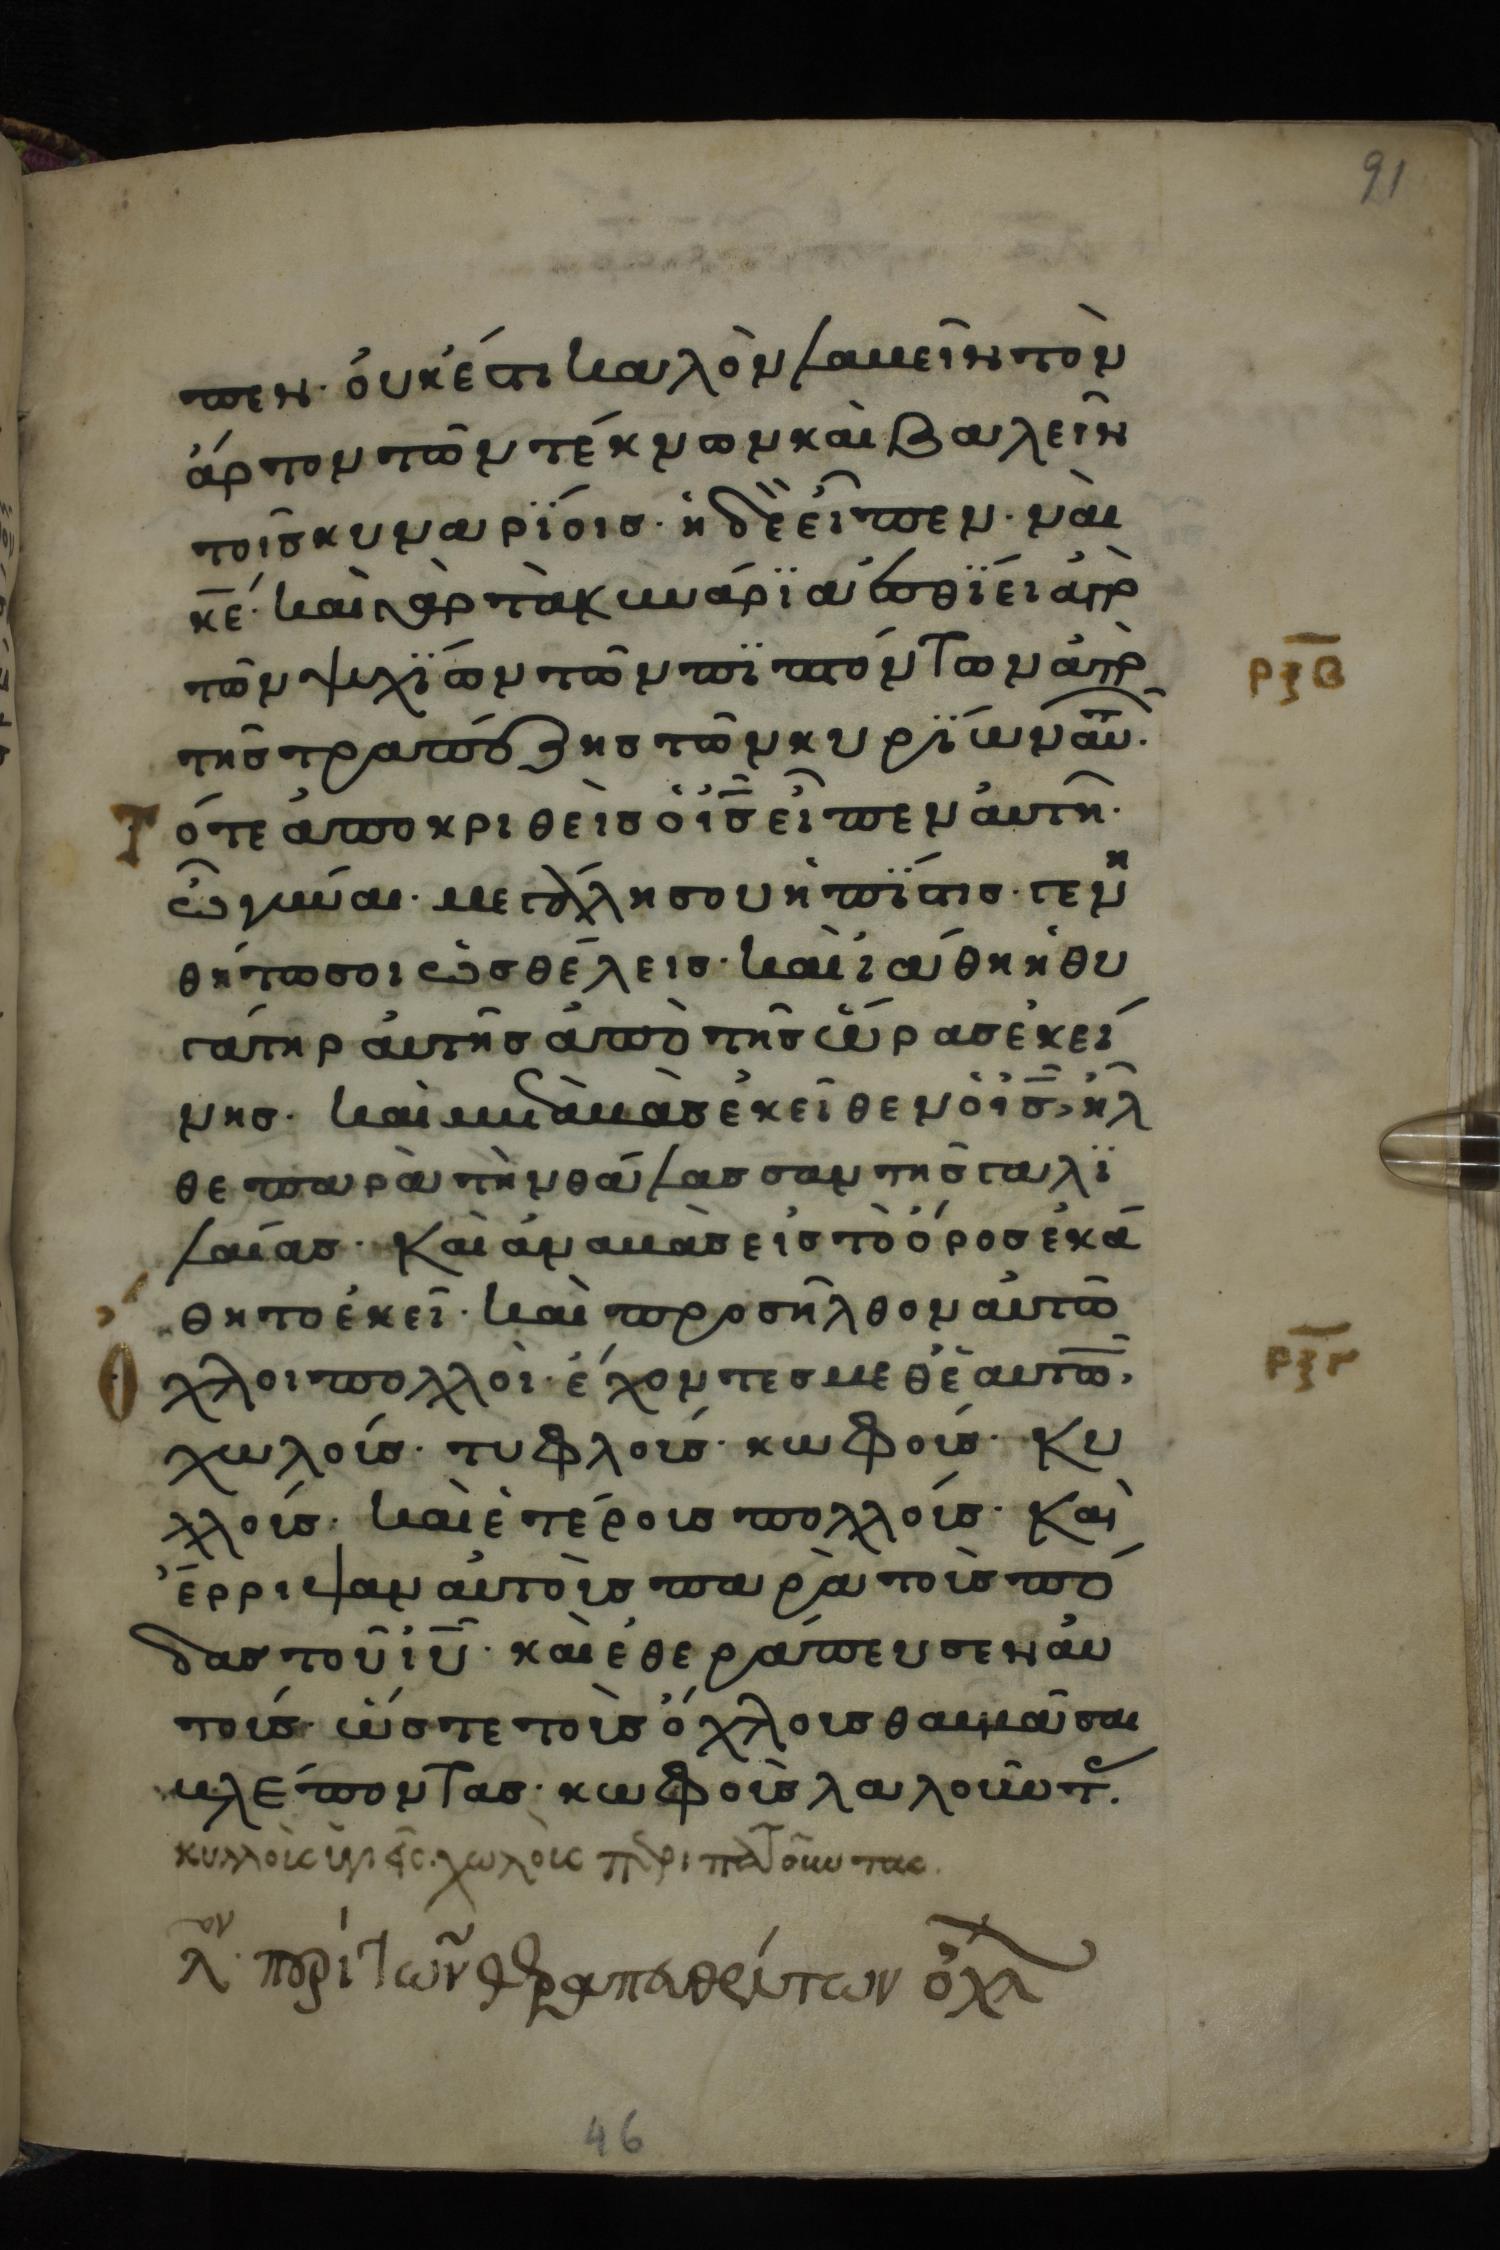 91
πεν· ὀυκέτι καλὸν λαβεῖν τὸν
ἄρτον τῶν τέκνων καὶ βαλεῖν
τοῖς κυναρΐοις· ἡ δὲ εἶπεν· ναὶ
κ̅ε· καὶ γὰρ τὰ κυνάρϊα ἐσθΐει ἀπὸ
τῶν ψιχΐων τῶν πϊπτόντων ἀπὸ
ρξβ
τῆς τραπέζης τῶν κυρΐων ἀυ̅τ·
Τότε ἀποκριθεὶς ὁ ἰ̅ς εἶπεν ἀυτῆ·
ὦ γύναι· μεγάλη σου ἡ πΐστις· γενη
θήτω σοι ὡς θέλεις· καὶ ἰάθη ἡ θυ
γάτηρ ἀυτῆς ἀπὸ τῆς ὥρας ἐκεί
νης· καὶ μεταβὰς ἐκεῖθεν ὁ ἰ̅ς, ἦλ
θε παρὰ τὴν θάλασσαν τῆς γαλϊ
λαίας· καὶ ἀναβὰς εἰς τὸ ὄρος ἐκά
θητο ἐκεῖ· καὶ προσῆλθον ἀυτῶ
Ὄχλοι πολλοὶ· ἔχοντες μεθ ἑαυτῶ̅,
ρξγ
χωλούς· τυφλούς· κωφούς· κυ
λλούς· καὶ ἑτέρους πολλούς· καὶ
ἔρριψαν ἀυτοὺς παρὰ τοὺς πό
δας τοῦ ἰ̅υ· καὶ ἐθεράπευσεν ἀυ
τούς· ὥστε τοὺς ὄχλους θαυμᾶσαι
βλέποντας· κωφοὺς λαλοῦντ.
κυλλοὺς ὑγιεῖς· χωλοὺς περιπατοῦντας.
περὶ τῶν θεραπευθέντων ὄχλ
46